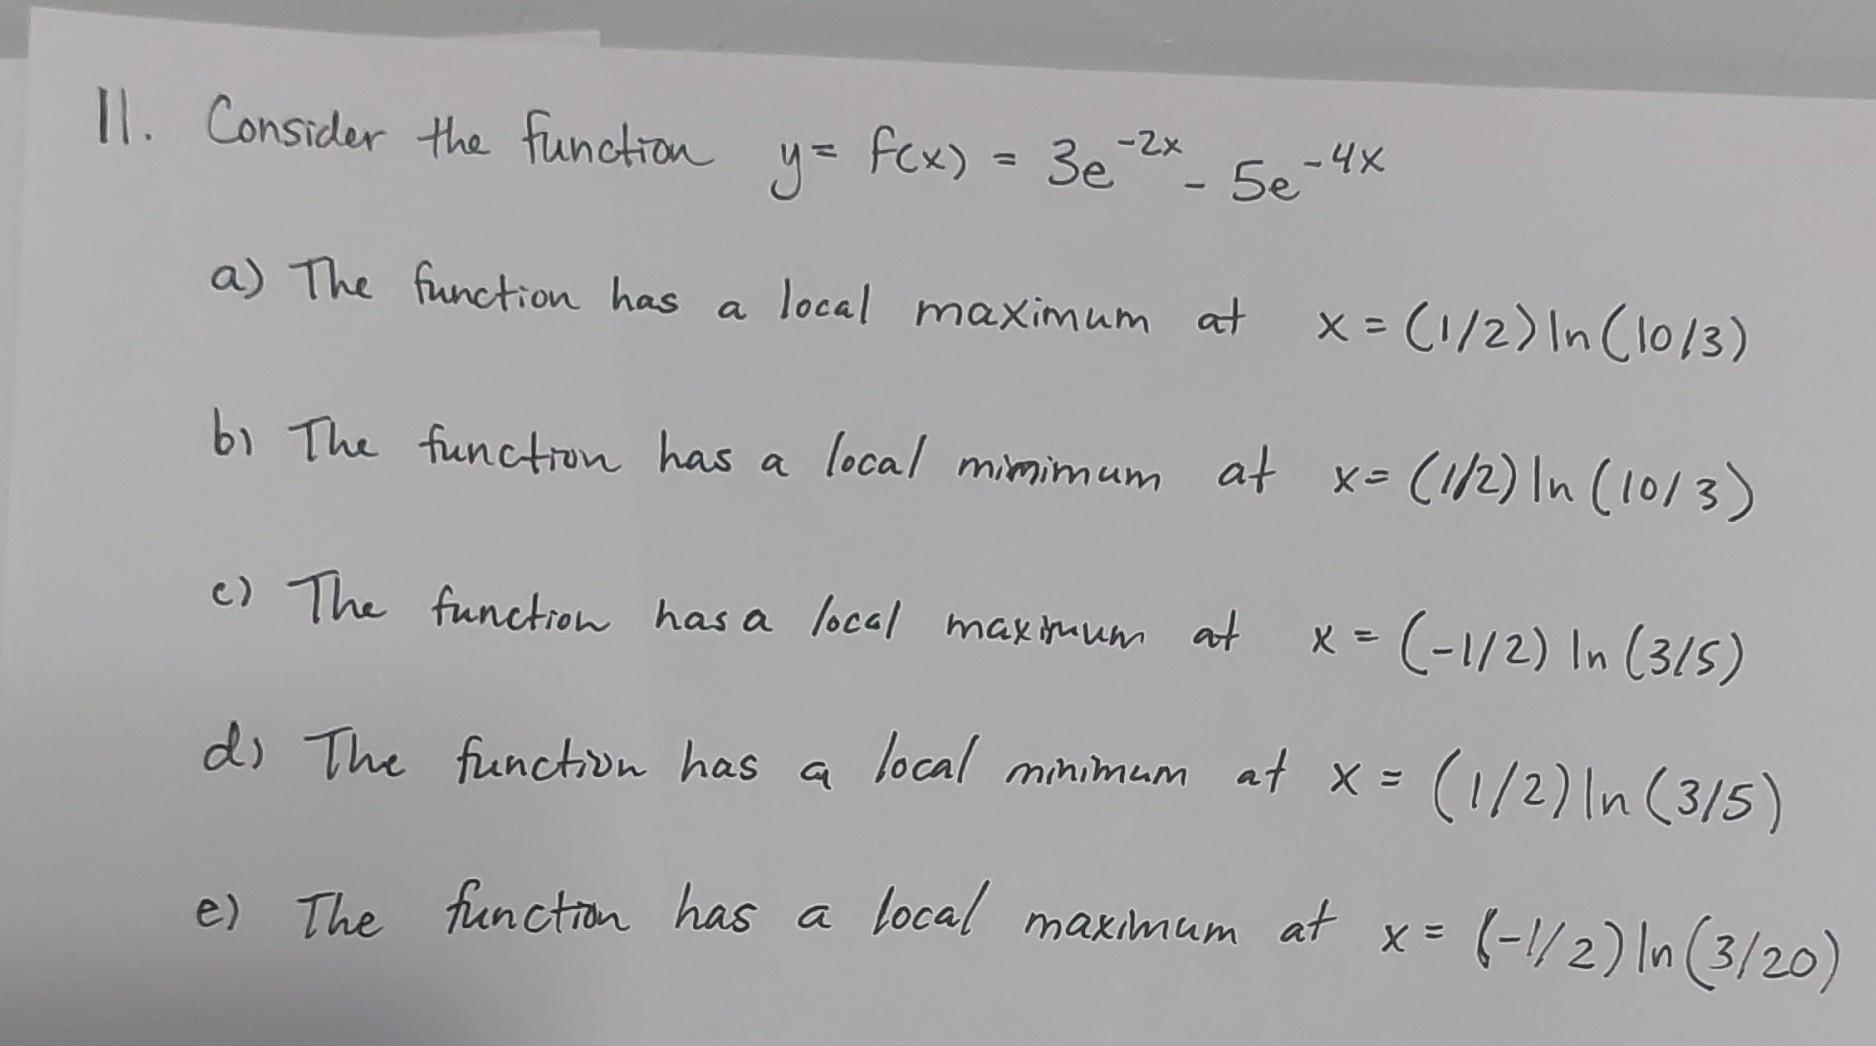 11. Consider the function y = f(x) = 3e^{-2x} - 5e^{-4x}
a) The function has a local maximum at x = (1/2) ln (10/3)
b) The function has a local minimum at x = (1/2) ln (10/3)
c) The function has a local maximum at x = (-1/2) ln (3/5)
d) The function has a local minimum at x = (1/2) ln (3/5)
e) The function has a local maximum at x = (-1/2) ln (3/20)